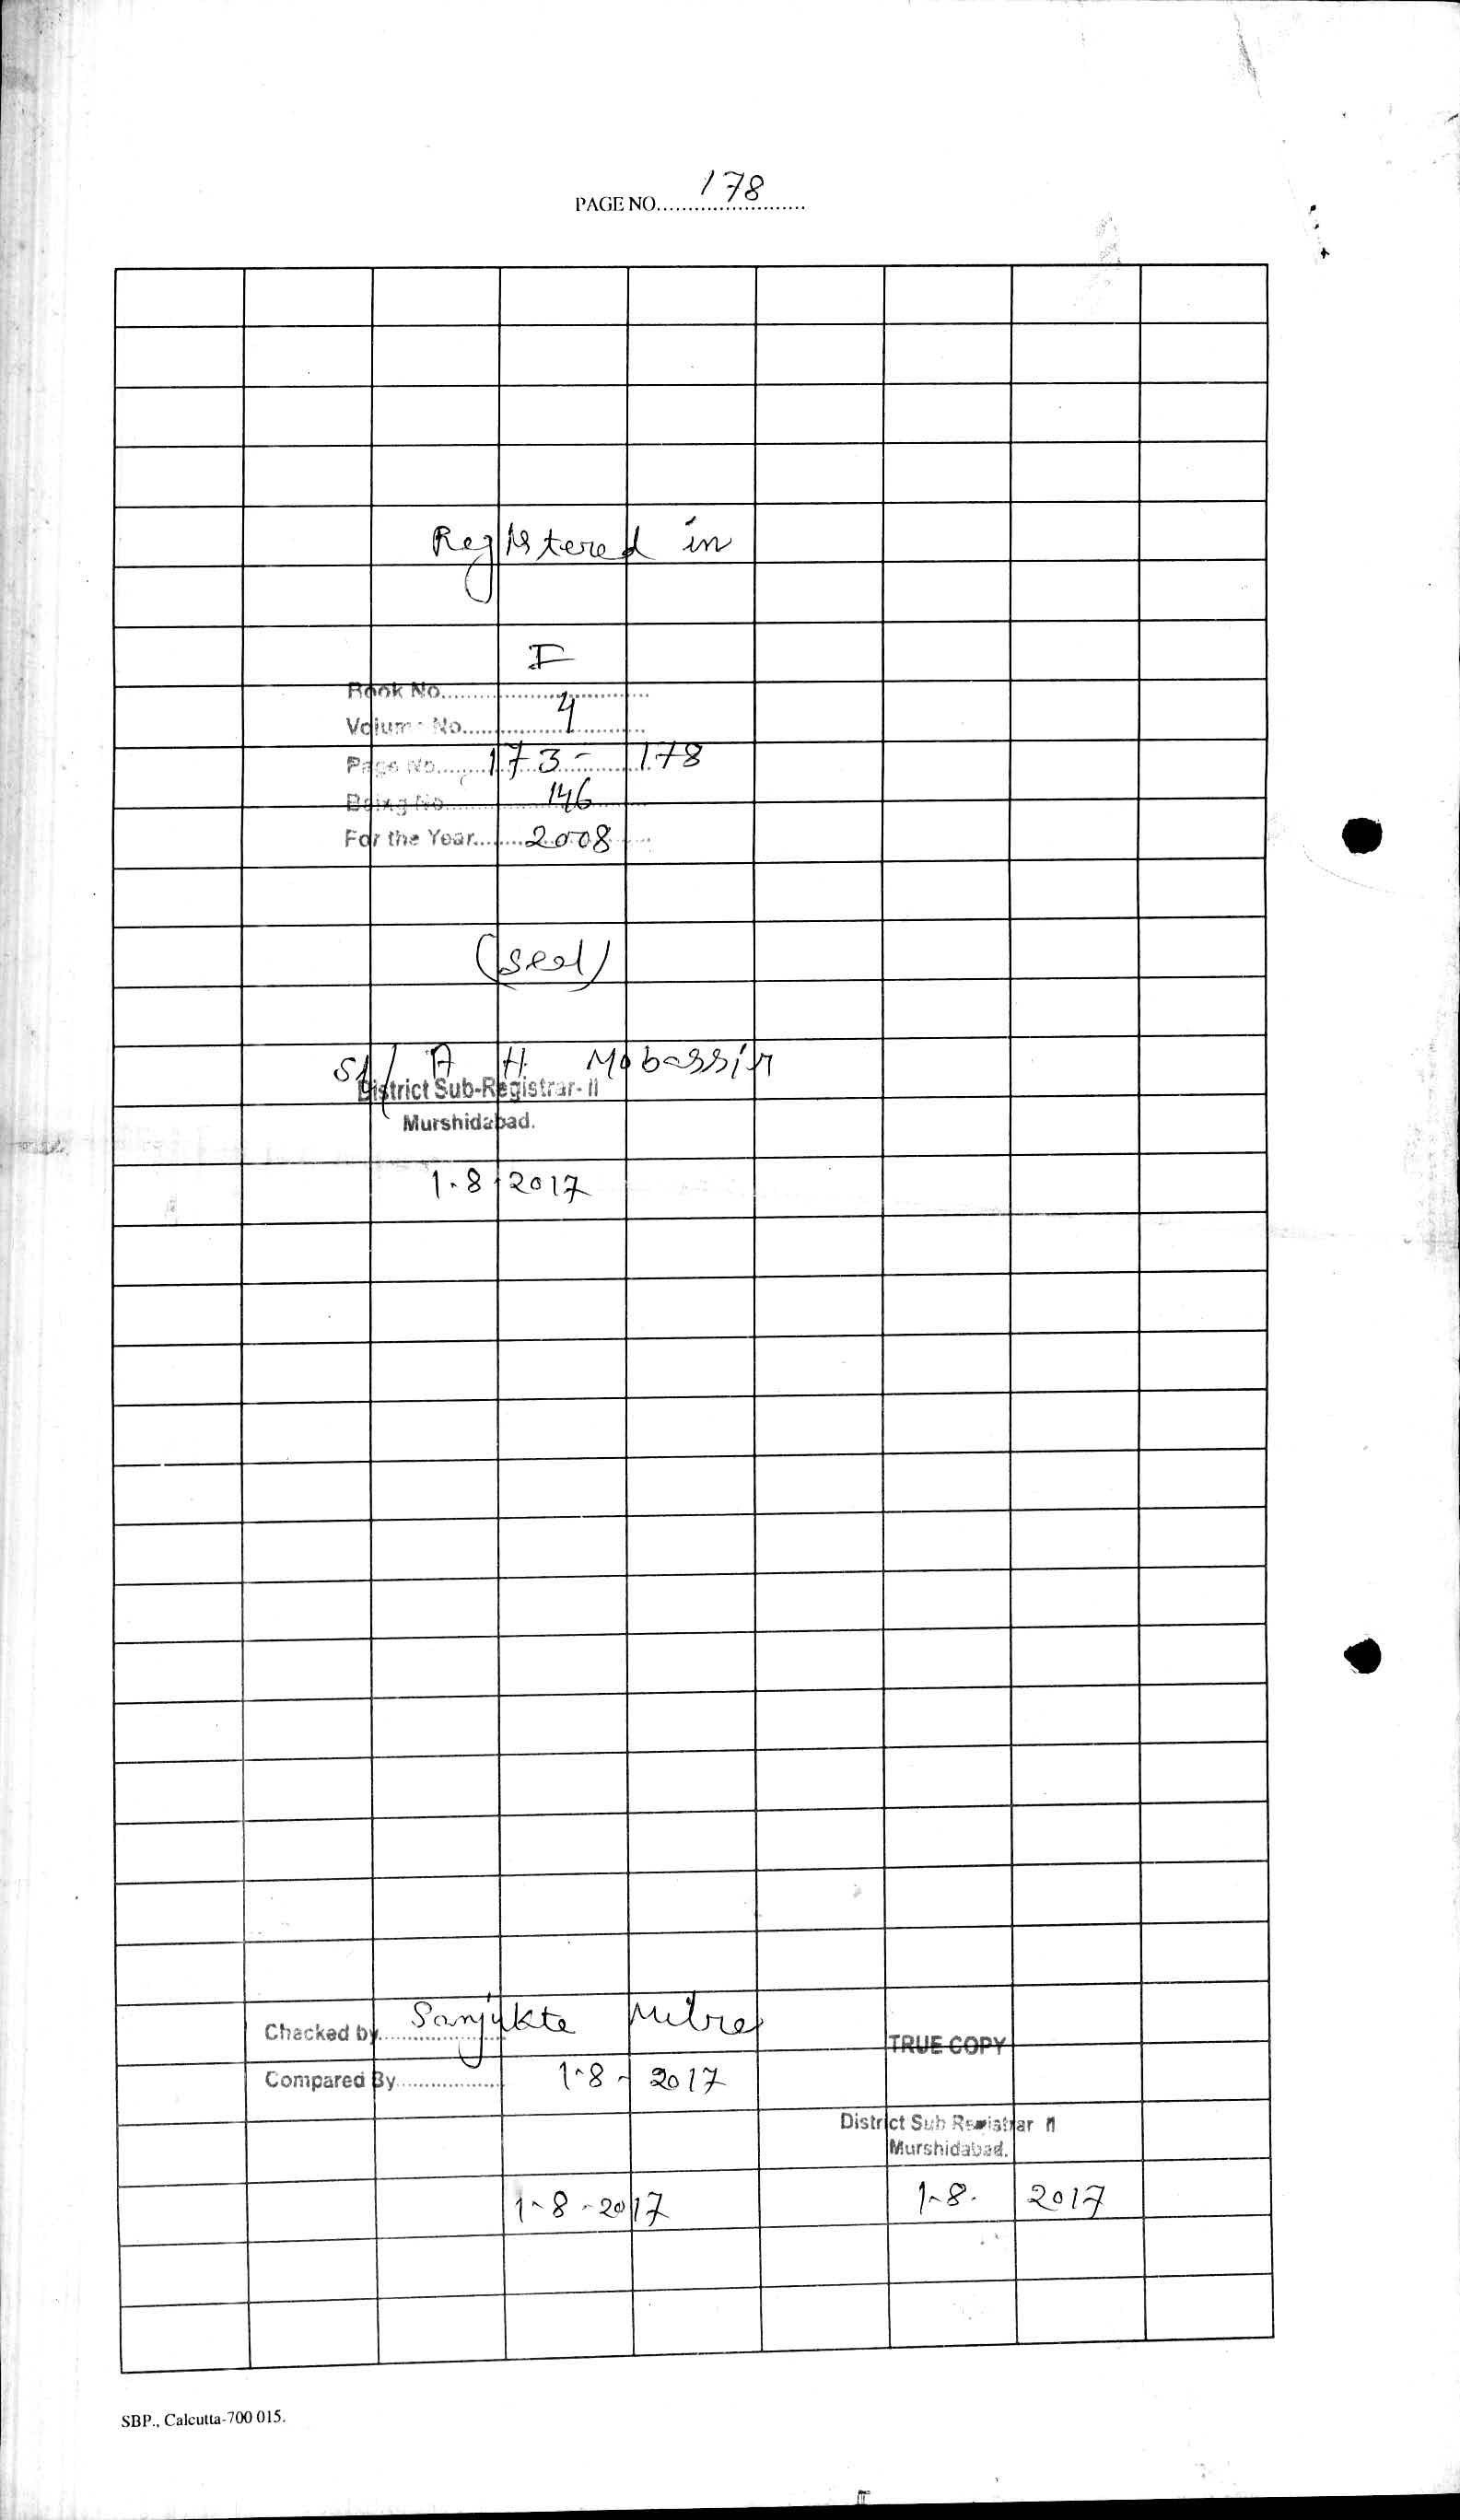 PAGE NO. 178
Registered in
Book No. I
Volume No. 4
Page No. 173 - 178
Being No. 146
For the Year 2008
(Seal)
Sd/ A H Mobassir
District Sub-Registrar-II
Murshidabad.
1.8.2017
Checked by Sanjukta Mitra
TRUE COPY
Compared By 1-8-2017
District Sub Registrar II
Murshidabad.
1-8-2017 1-8. 2017
SBP., Calcutta-700 015.